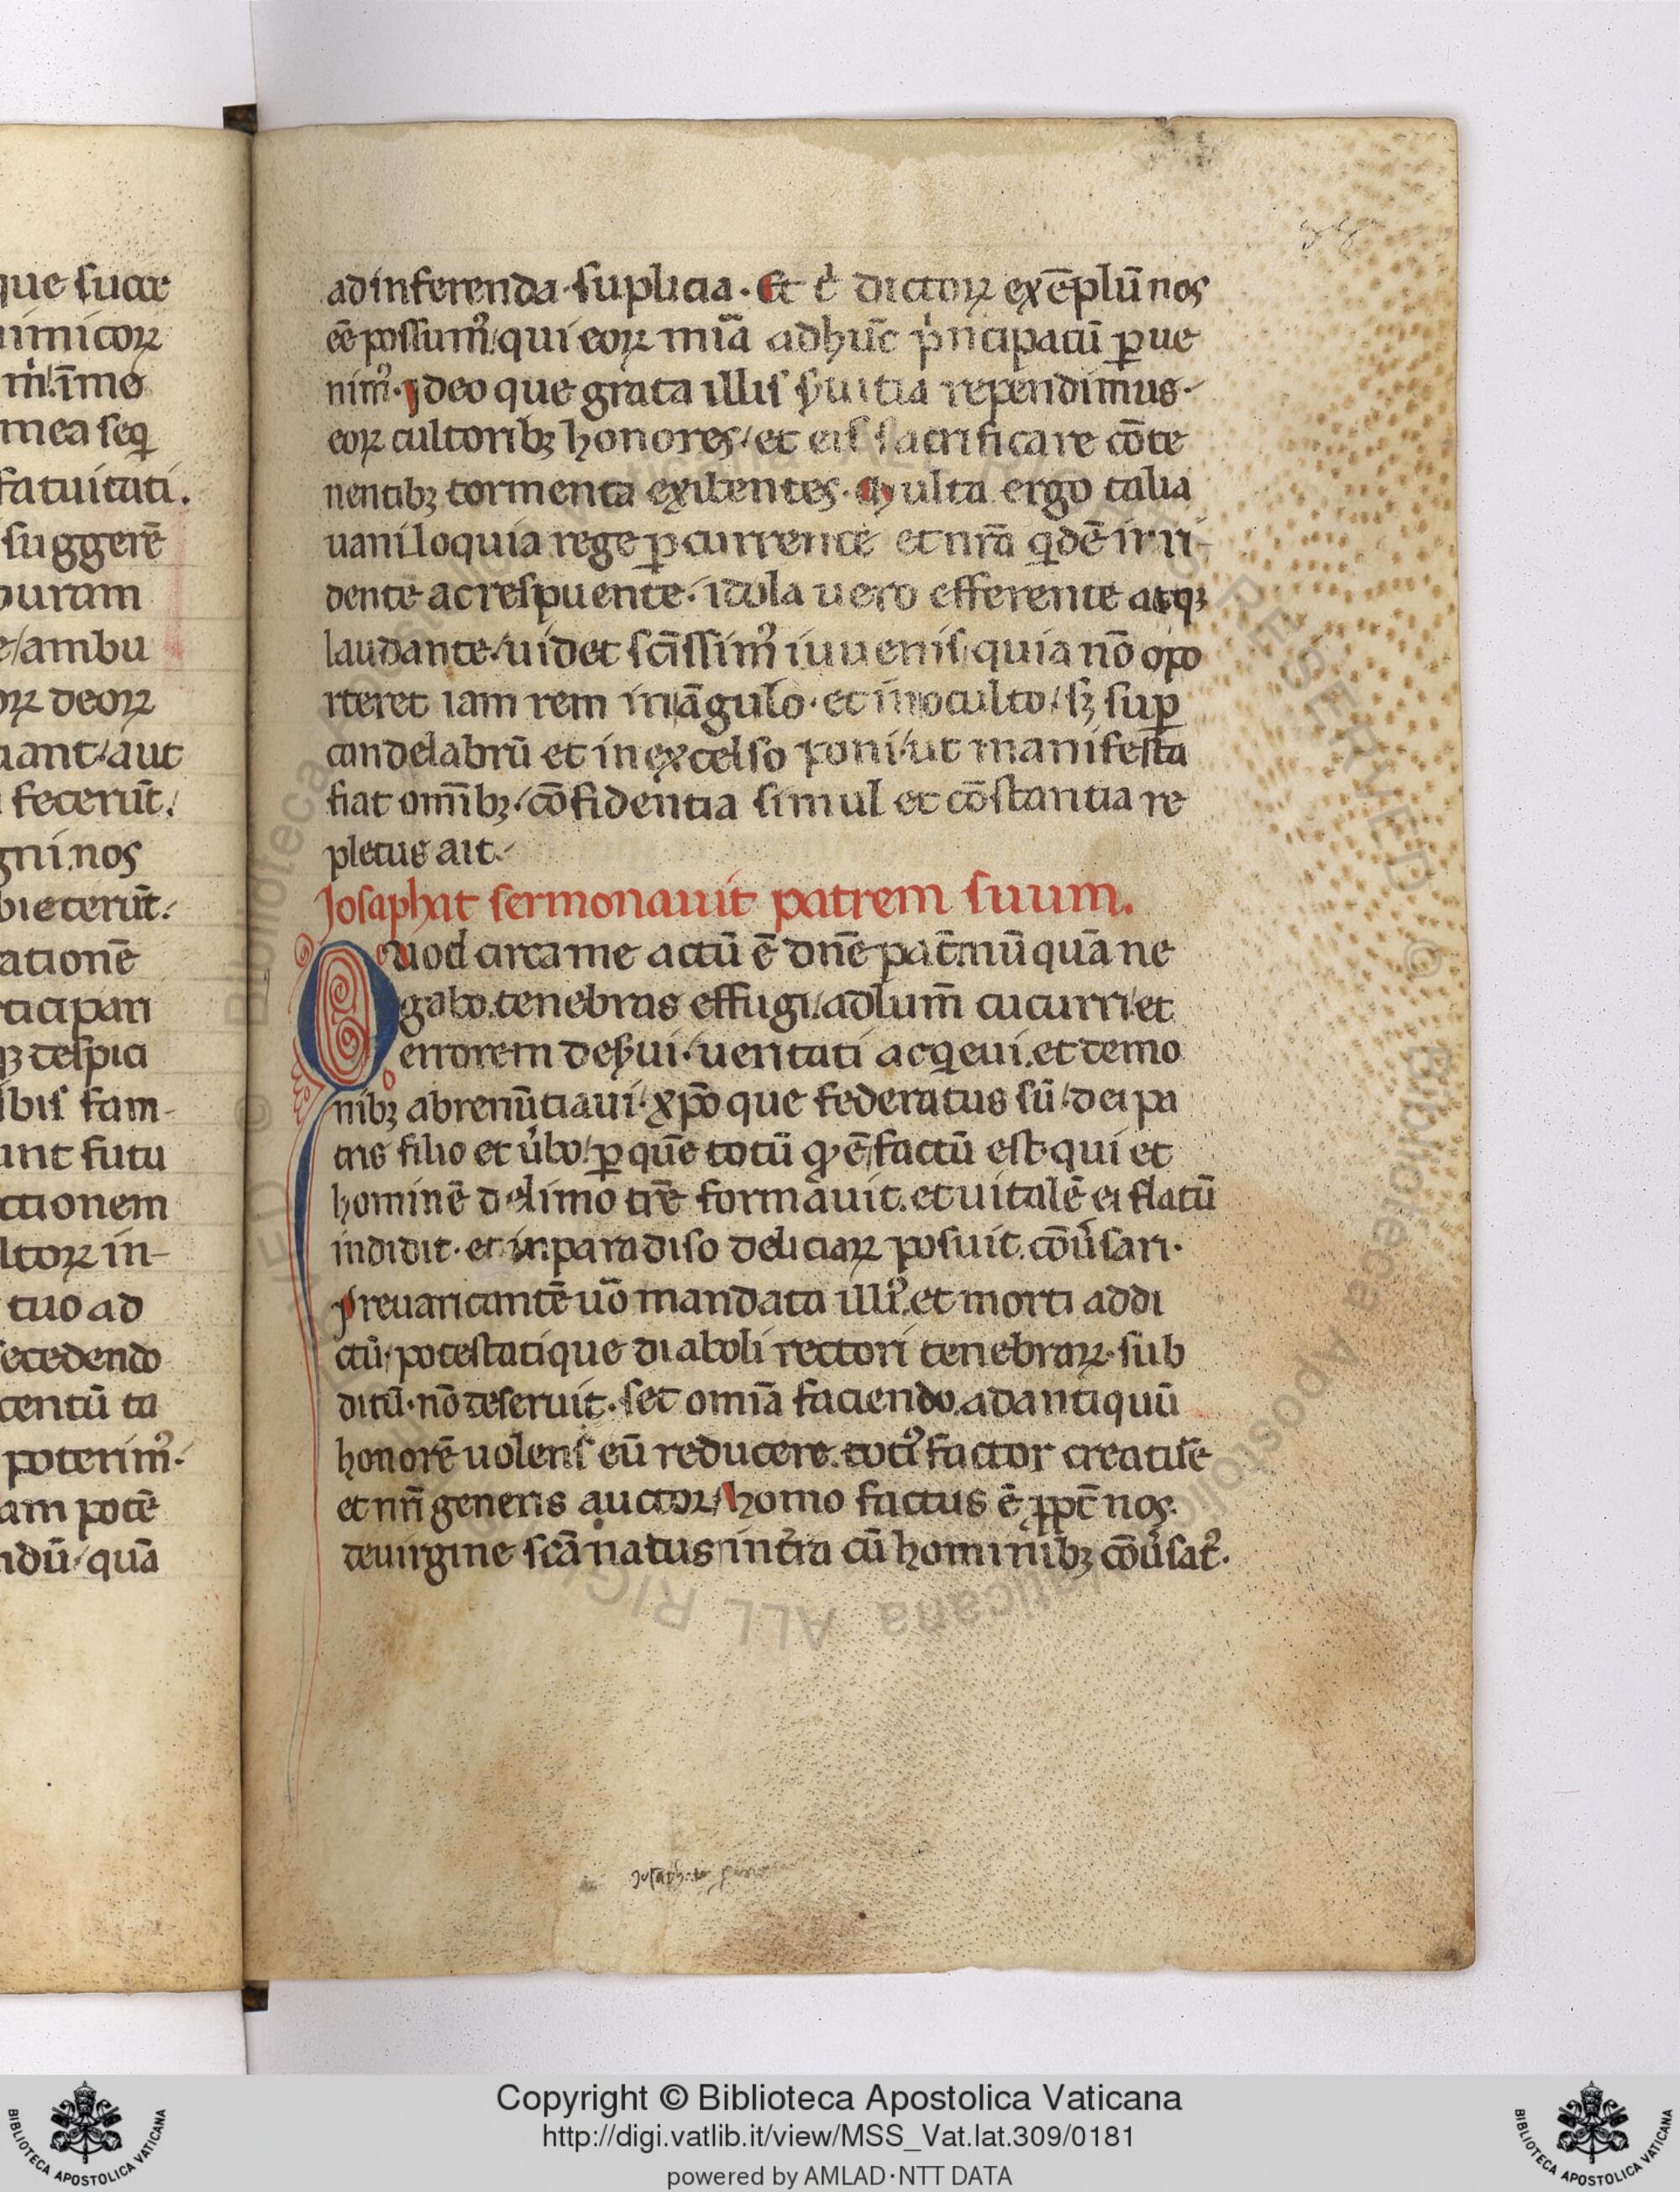 que suce
imicoꝝ
mea seq
fatuitati.
suggerē
puram
e/ambu
oꝝ deoꝝ
iant/aut
fecerūt/
gni.nos
biecerūt.
rationē
rticipari
ibis fam-
unt futu
ctionem
ltoꝝ in-
tuo ad
ecedendo
centū ta
poterimꝰ
am potē
ndū/quā
ad inferenda suplicia. Et dictoꝝ exēplū nos
eē possumꝰ/qui eoꝝ mīa adhūc pⁱncipatū ꝑue
nimꝰ. Ideo que grata illis suitia rependimus.
eoꝝ cultoribꝫ honores/et eis sacrificare cōte
nentibꝫ tormenta exibentes. Multa ergo talia
uaniloquia rege ꝑcurrente et nr̄a qdē irri-
dente ac respuente. idola uero efferente atqꝫ
laudante/uidet sc̄issimꝰ iuuenis/quia nō opo
rteret iam rem in āgulo. et in oculto/sꝫ suꝑ
candelabrū et in excelso poni/ut manifesta
fiat omībꝫ/cōfidentia simul et cōstantia re
pletus ait.
Josaphat sermonauit patrem suum.
Quod circa me actū ē dn̄e pat̄. nūquā ne
gabo. tenebras effugi/ad lum̄ cucurri/et
errorem deserui/ueritati acqeui. et demo
nibꝫ abrenūtiaui. xp̄o que federatus sū/dei pa
tris filio et u̓bo/ꝑ quē totū qͥ ē/factū est. qui et
hominē de limo tr̄e formauit. et uitalē ei flatū
indidit. et in paradiso deliciaꝝ posuit. cōu̓sari.
Preuaricantē uō mandata illiꝰ. et morti addi
ctū/potestatique diaboli rectori tenebraꝝ. sub
ditū. nō deseruit. set omīa faciendo. ad antiquū
honorē uolens eū reducere. totiꝰ factor creature
et nr̄i generis auctor/homo factus ē ꝓpt̄ nos.
de uirgine sc̄a natus in t̄ra cū hominibꝫ cōu̓satꝰ.
Copyright © Biblioteca Apostolica Vaticana
http://digi.vatlib.it/view/MSS_Vat.lat.309/0181
powered by AMLAD·NTT DATA
BIBLIOTECA APOSTOLICA VATICANA
BIBLIOTECA APOSTOLICA VATICANA